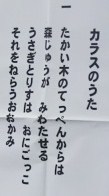 カラスのうた
一
たかい木のてっぺんからは
森じゅうが みわたせる
うさぎとりすは おにごっこ
それをねらうおおかみ